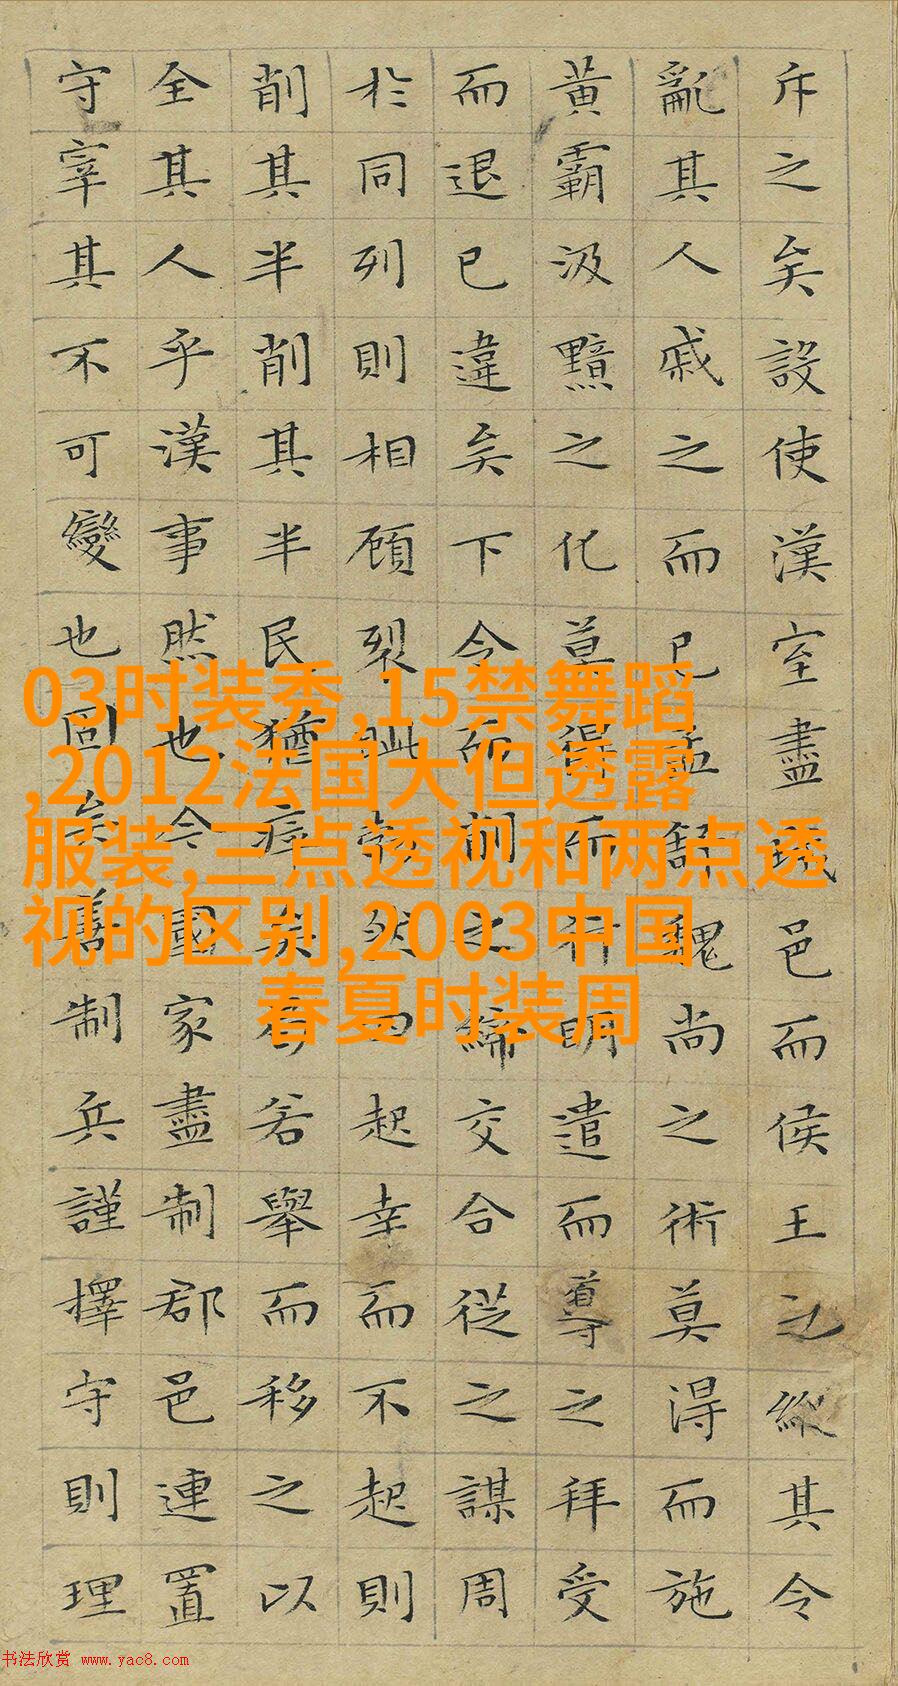 斥之矣設使漢室盡城邑而侯王之縱其令
亂其人戚之而已孟舒魏尚之術莫得而施
黃霸汲黯之化莫得所行明遣而導之拜受
而退已違矣下令而削之締交合從之謀周
於同列則相顧裂眦勃然而起幸而不起則
削其半削其半民猶瘁矣曷若舉而移之以
全其人乎漢事然也今國家盡制郡邑連置
守宰其不可變也固矣善制兵謹擇守則理
03时装秀,15禁舞蹈
,2012法国大但透露
服装,三点透视和两点透
视的区别,2003中国
春夏时装周
书法欣赏 www.yac8.com